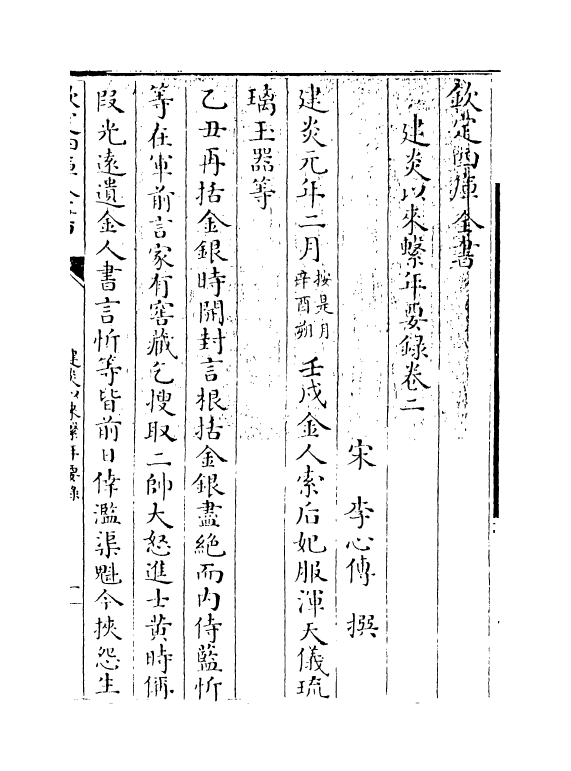 欽定四庫全書
建炎以來繫年要錄卷二
宋 李心傳 撰
建炎元年二月按是月辛酉朔壬戌金人索后妃服渾天儀琉
璃玉器等
乙丑再括金銀時開封言根括金銀盡絶而内侍藍忻
等在軍前言家有窖藏乞搜取二帥大怒進士黄時偁
段光遠遺金人書言忻等皆前日倖濫渠魁今挾怨生
建炎以來繫年要錄